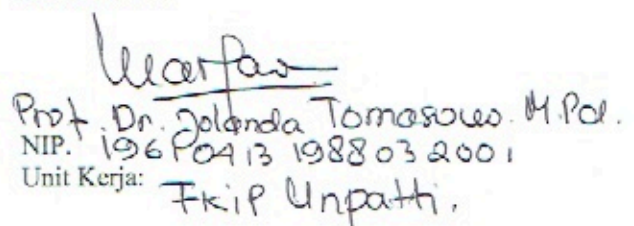 Prof. Dr. Jolanda Tomasouw. M.Pd.
NIP. 196 0413 198803 2001
Unit Kerja: FKIP Unpatti.